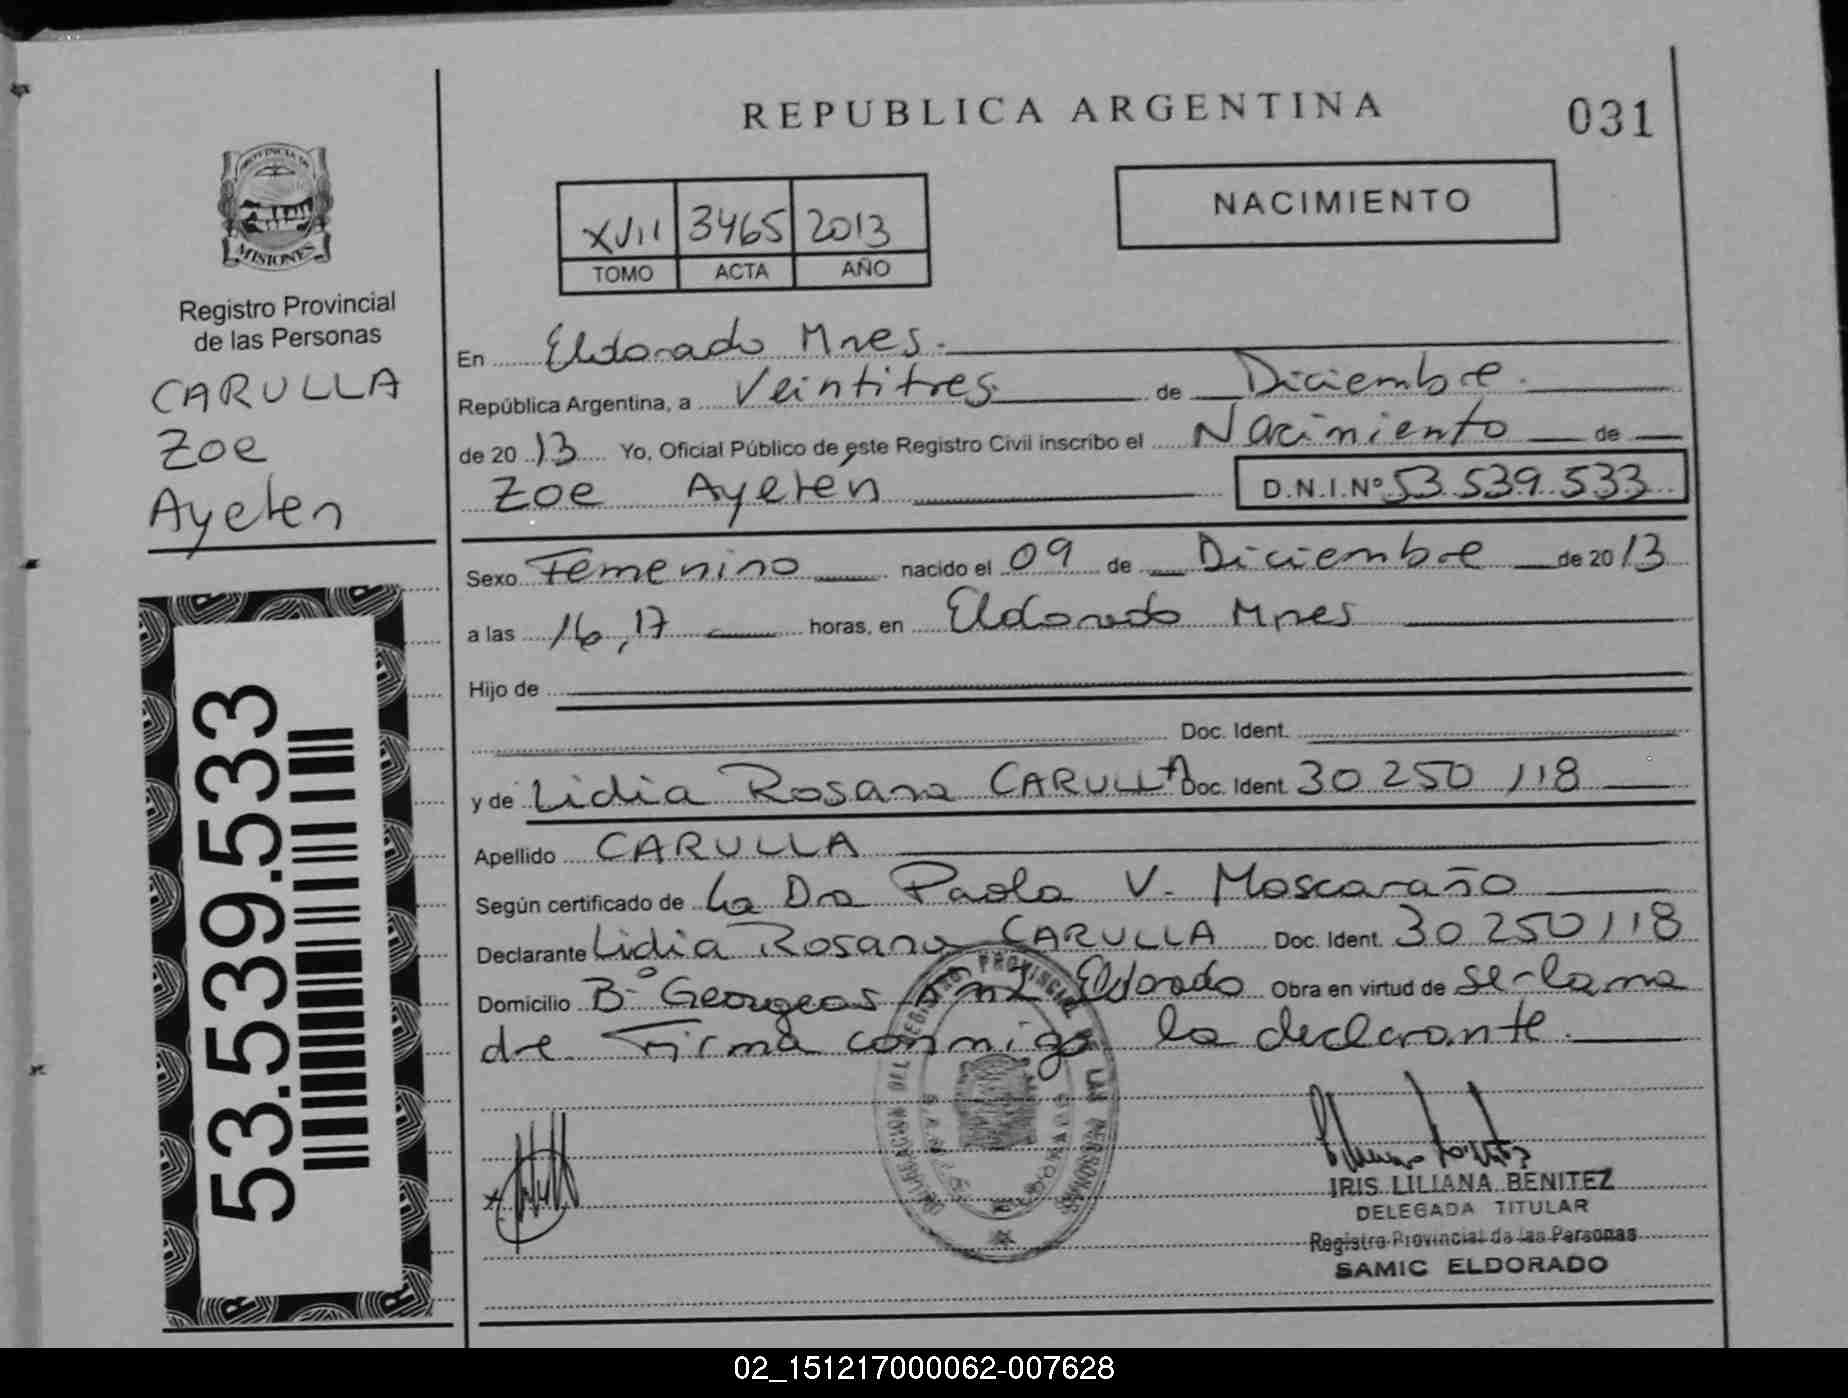 REPUBLICA ARGENTINA
031
PROVINCIA DE
MISIONES
Registro Provincial
de las Personas
CARULLA
Zoe
Ayelen
53.539.533
XVII 3465 2013
TOMO ACTA AÑO
NACIMIENTO
En Eldorado Mnes.
República Argentina, a Veintitres de Diciembre.
de 2013 Yo, Oficial Público de este Registro Civil inscribo el Nacimiento de
Zoe Ayelén D.N.I.Nº 53.539.533
Sexo Femenino nacido el 09 de Diciembre de 2013
a las 16,17 horas, en Eldorado Mnes
Hijo de
Doc. Ident.
y de Lidia Rosana CARULLA Doc. Ident. 30 250 118
Apellido CARULLA
Según certificado de La Dra Paola V. Moscaraño
Declarante Lidia Rosana CARULLA Doc. Ident. 30 250118
Domicilio Bº Georgeas Eldorado Obra en virtud de
de Firma conmigo la declarante.
DELEGACION DEL REGISTRO PROVINCIAL DE LAS PERSONAS
ELDORADO
IRIS LILIANA BENITEZ
DELEGADA TITULAR
Registro Provincial de las Personas
SAMIC ELDORADO
02_151217000062-007628